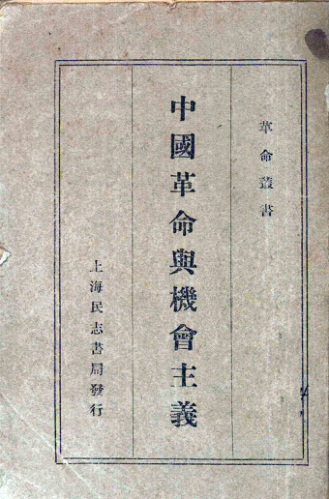 革命叢書
中國革命與機會主義
上海民志書局發行